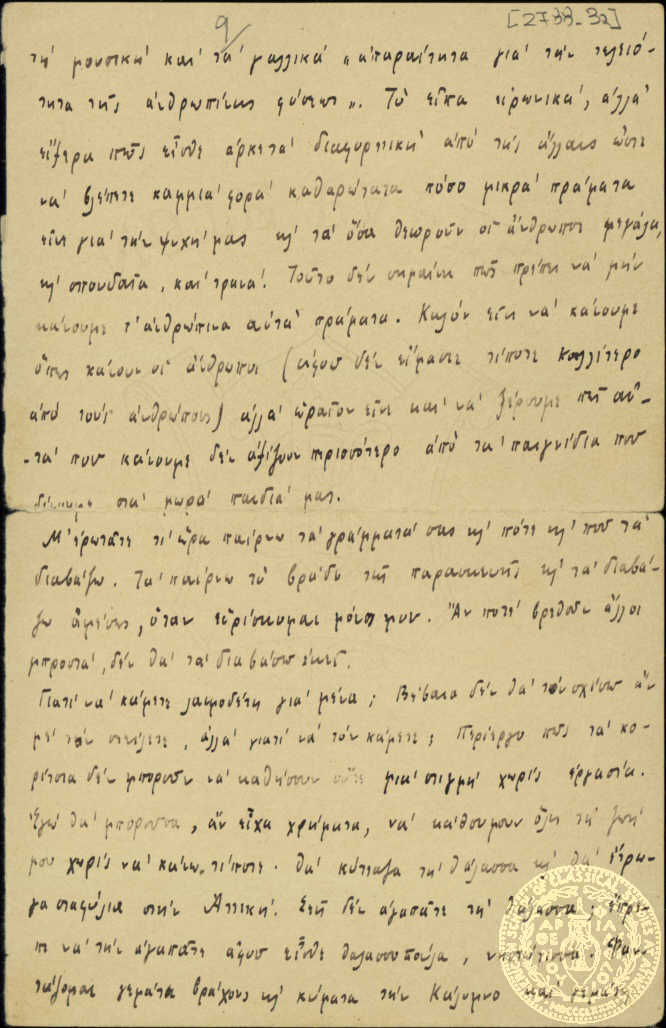 9
[2738-32]
τὴ μουσικὴ καὶ τὰ γαλλικὰ «ἀπαραίτητα γιὰ τὴν τελειό-
τητα τῆς ἀνθρωπίνης φύσεως». Τὸ εἶπα εἰρωνικά, ἀλλὰ
εἴξερα πῶς εἶσθε ἀρκετὰ διαφορετικὴ ἀπὸ τὴς ἄλλαις ὥστε
νὰ βλέπετε καμμιὰ φορὰ καθαρώτατα πόσο μικρὰ πράματα
εἶνε γιὰ τὴν ψυχή μας κι' τὰ ὅσα θεωροῦν οἱ ἄνθρωποι μεγάλα,
κι' σπουδαῖα, καὶ τρανά! Τοῦτο δὲν σημαίνει πῶς πρέπει νὰ μὴν
κάνουμε τ' ἀνθρώπινα αὐτὰ πράματα. Καλὸν εἶνε νὰ κάνουμε
ὅπως κάνουν οἱ ἄνθρωποι (ἀφοῦ δὲν εἴμαστε τίποτε καλλίτερο
ἀπὸ τοὺς ἀνθρώπους) ἀλλὰ ὡραῖον εἶνε καὶ νὰ ξέρουμε πῶς αὐ-
-τὰ ποῦ κάνουμε δὲν ἀξίζουν περισσότερο ἀπὸ τὰ παιγνίδια ποῦ
δίνουμε στὰ μωρὰ παιδιά μας.
Μ' ἐρωτᾶτε τί ὥρα παίρνω τὰ γράμματά σας κι' πότε κι' ποῦ τὰ
διαβάζω. Τὰ παίρνω τὸ βράδυ τῆς παρασκευῆς κι' τὰ διαβά-
ζω ἀμέσως, ὅταν εὑρίσκωμαι μόνος μου. Ἂν ποτὲ βρεθοῦν ἄλλοι
μπροστά, δὲν θὰ τὰ διαβάσω ἐκεῖ.
Γιατί νὰ κάμετε λαιμοδέτη γιὰ μένα; Βέβαια δὲν θὰ τὸν σχίσω ἂν
μὲ τὸν στείλετε, ἀλλὰ γιατί νὰ τὸν κάμετε; Περίεργο πῶς τὰ κο-
ρίτσια δὲν μποροῦν νὰ καθήσουν οὔτε μιὰ στιγμὴ χωρὶς ἐργασία.
Ἐγὼ θὰ μποροῦσα, ἂν εἶχα χρήματα, νὰ κάθουμουν ὅλη τὴ ζωή
μου χωρὶς νὰ κάνω τίποτε. Θὰ κύτταζα τὴ θάλασσα κι' θὰ ἔτρω-
γα σταφύλια στὴν Ἀττική. Ἐσεῖς δὲν ἀγαπᾶτε τὴ θάλασσα; ἔπρε-
πε νὰ τὴν ἀγαπᾶτε ἀφοῦ εἶσθε θαλασσοπούλα, νησιώτισσα. Φαν-
τάζομαι γεμάτα βράχους κι' κύματα τὴν Κάλυμνο καὶ γεμάτη